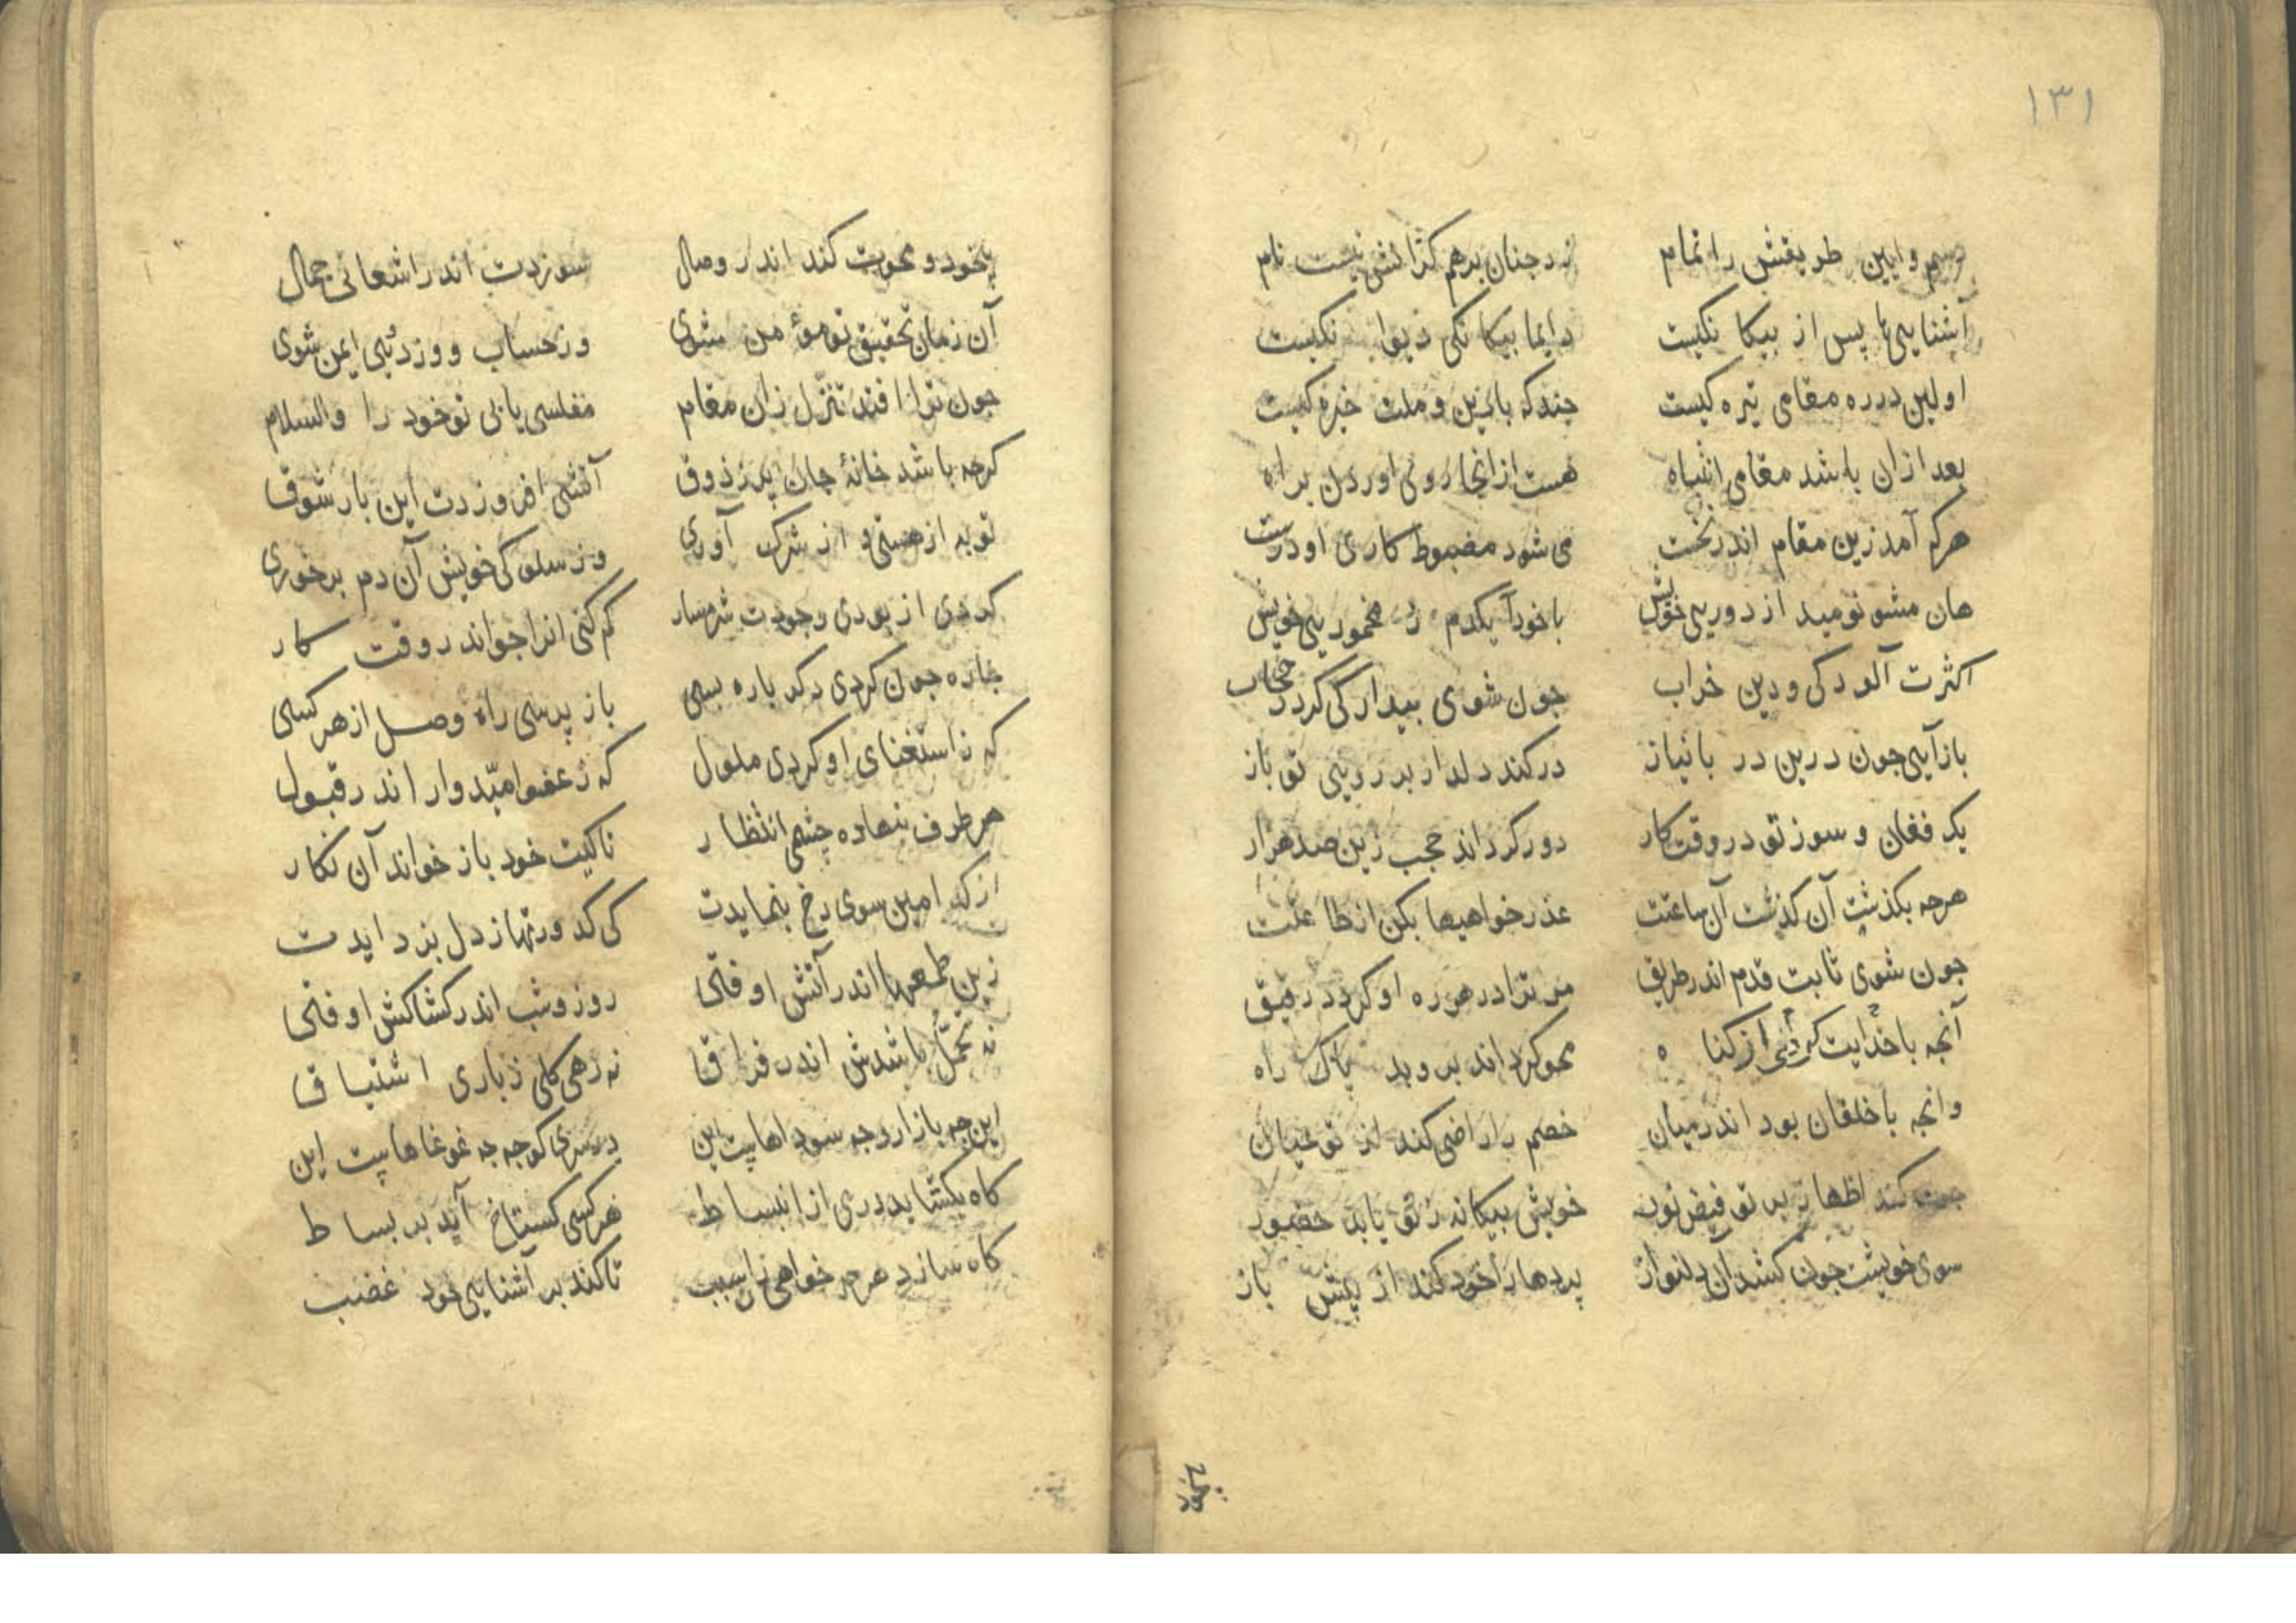 ۱۳۱
رسم و ایین طریقش را تمام زد چنان برهم کزانش نیست نام
آشنایی‌ها پس از بیکانکیست دایما بیکانکی دیوانکیست
اولین در ره مقامی تیره کیست چندکه با دین و ملت خیره کیست
بعد ازان باشد مقامی انتباه هست از انجا روی اوردن براه
هرکه آمد زین مقام اندر نخست می شود مضبوط کاری او درست
هان مشو نومید از دوریی خویش با خودآ یکدم ز مخموریی خویش
اکثرت آلودکی و دین خراب جون شوی بیدار کی کردد حجاب
بازآیی جون درین در با نیاز درکند دلدار بر روینی تو باز
یک فغان و سوز تو در وقت کار دور کرداند حجب زین صد هزار
هرجه بکذشت آن کذشت آن ساعتت عذر خواهیها بکن از طاعتت
جون شوی ثابت قدم اندر طریق مر ترا در هر ره او کردد رفیق
آنجه با خدایت کردنی از کناه محو کرداند بروبد پاک راه
وانجه با خلقان بود اندر میان خصم را راضی کند از تو عیان
کند اظهار بر تو فیض نور خویش بیکانه ز تو یابد حضور
سوی خویشت جون کشد آن دلنواز پردها را خود کند از پیش باز
بیخود
بیخود و محوت کند اندر وصال سوزدت اندر اشعاتی جمال
آن زمان تحقیق تو مؤمن شوی وز حساب و وز دئبی ایمن شوی
جون ترا افتد تنزّل زان مقام مفلسی یابی تو خود را والسلام
کرجه باشد خانهٔ جان پر ز ذوق آتشی افروزدت این بار شوق
توبه از هستی و از شرک آوری وز سلوکی خویش آن دم برخوری
کردی از بودی وجودت شرمسار کم کنی انرا جو اندر وقت کار
جاره جون کردی دکر باره بسی باز پرسی راه وصل از هر کسی
که ز استغنای او کردی ملول که ز عفو امیّدوار اندر قبول
هر طرف بنهاده چشمی انتظار تا کیت خود باز خواند آن نکار
از کدامین سوی رخ بنمایدت کی کدورتها ز دل بزدایدت
زین طمعها اندر آتش اوفتی روز و شب اندر کشاکش اوفتی
نه تحمّل باشدش اندر فراق نه رهی کلی ز باری اشتیاق
این جه بازار و جه سوداهاییت این در سری کوجه جه غوغاهاییت این
کاه بکشاید دری از انبساط هر کسی کستاخ آید بر بساط
کاه سازد هرجه خواهی زان سبب تا کند بر آشنایی خود غضب